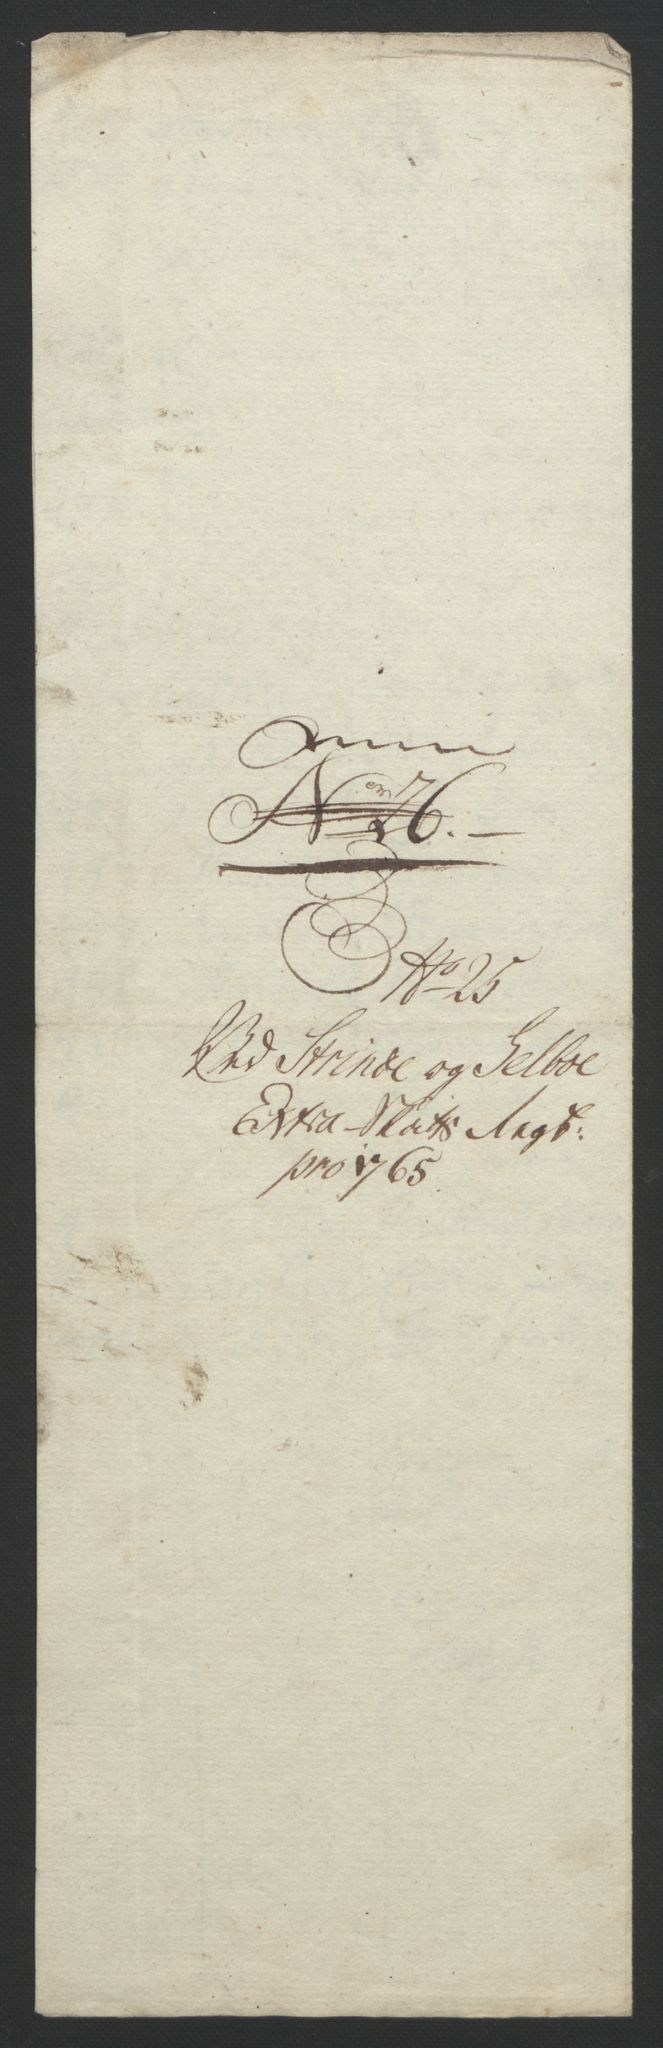 No 26.
No 25
Ved Strinde og Selboe
Extra-Skatts Regsk:
pro 1765